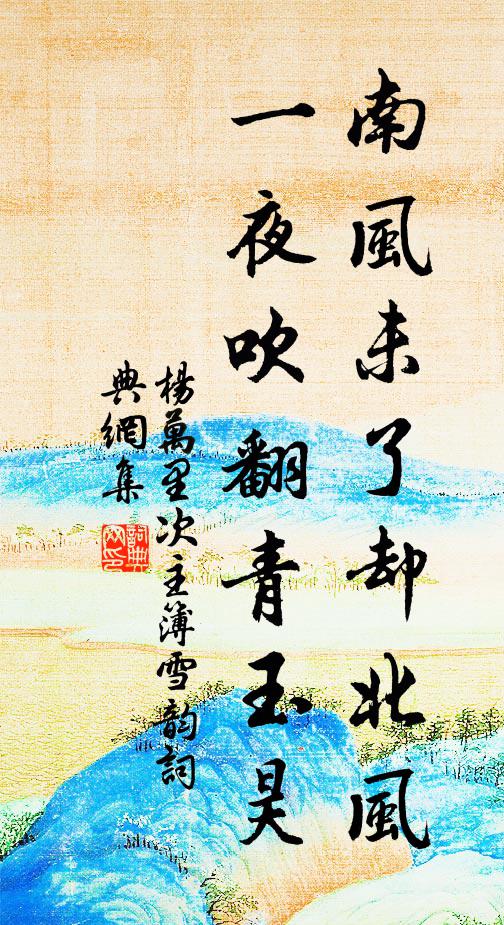 南風未了却北風
一夜吹翻青玉昊
楊萬里次主簿雪韵詞
典網集